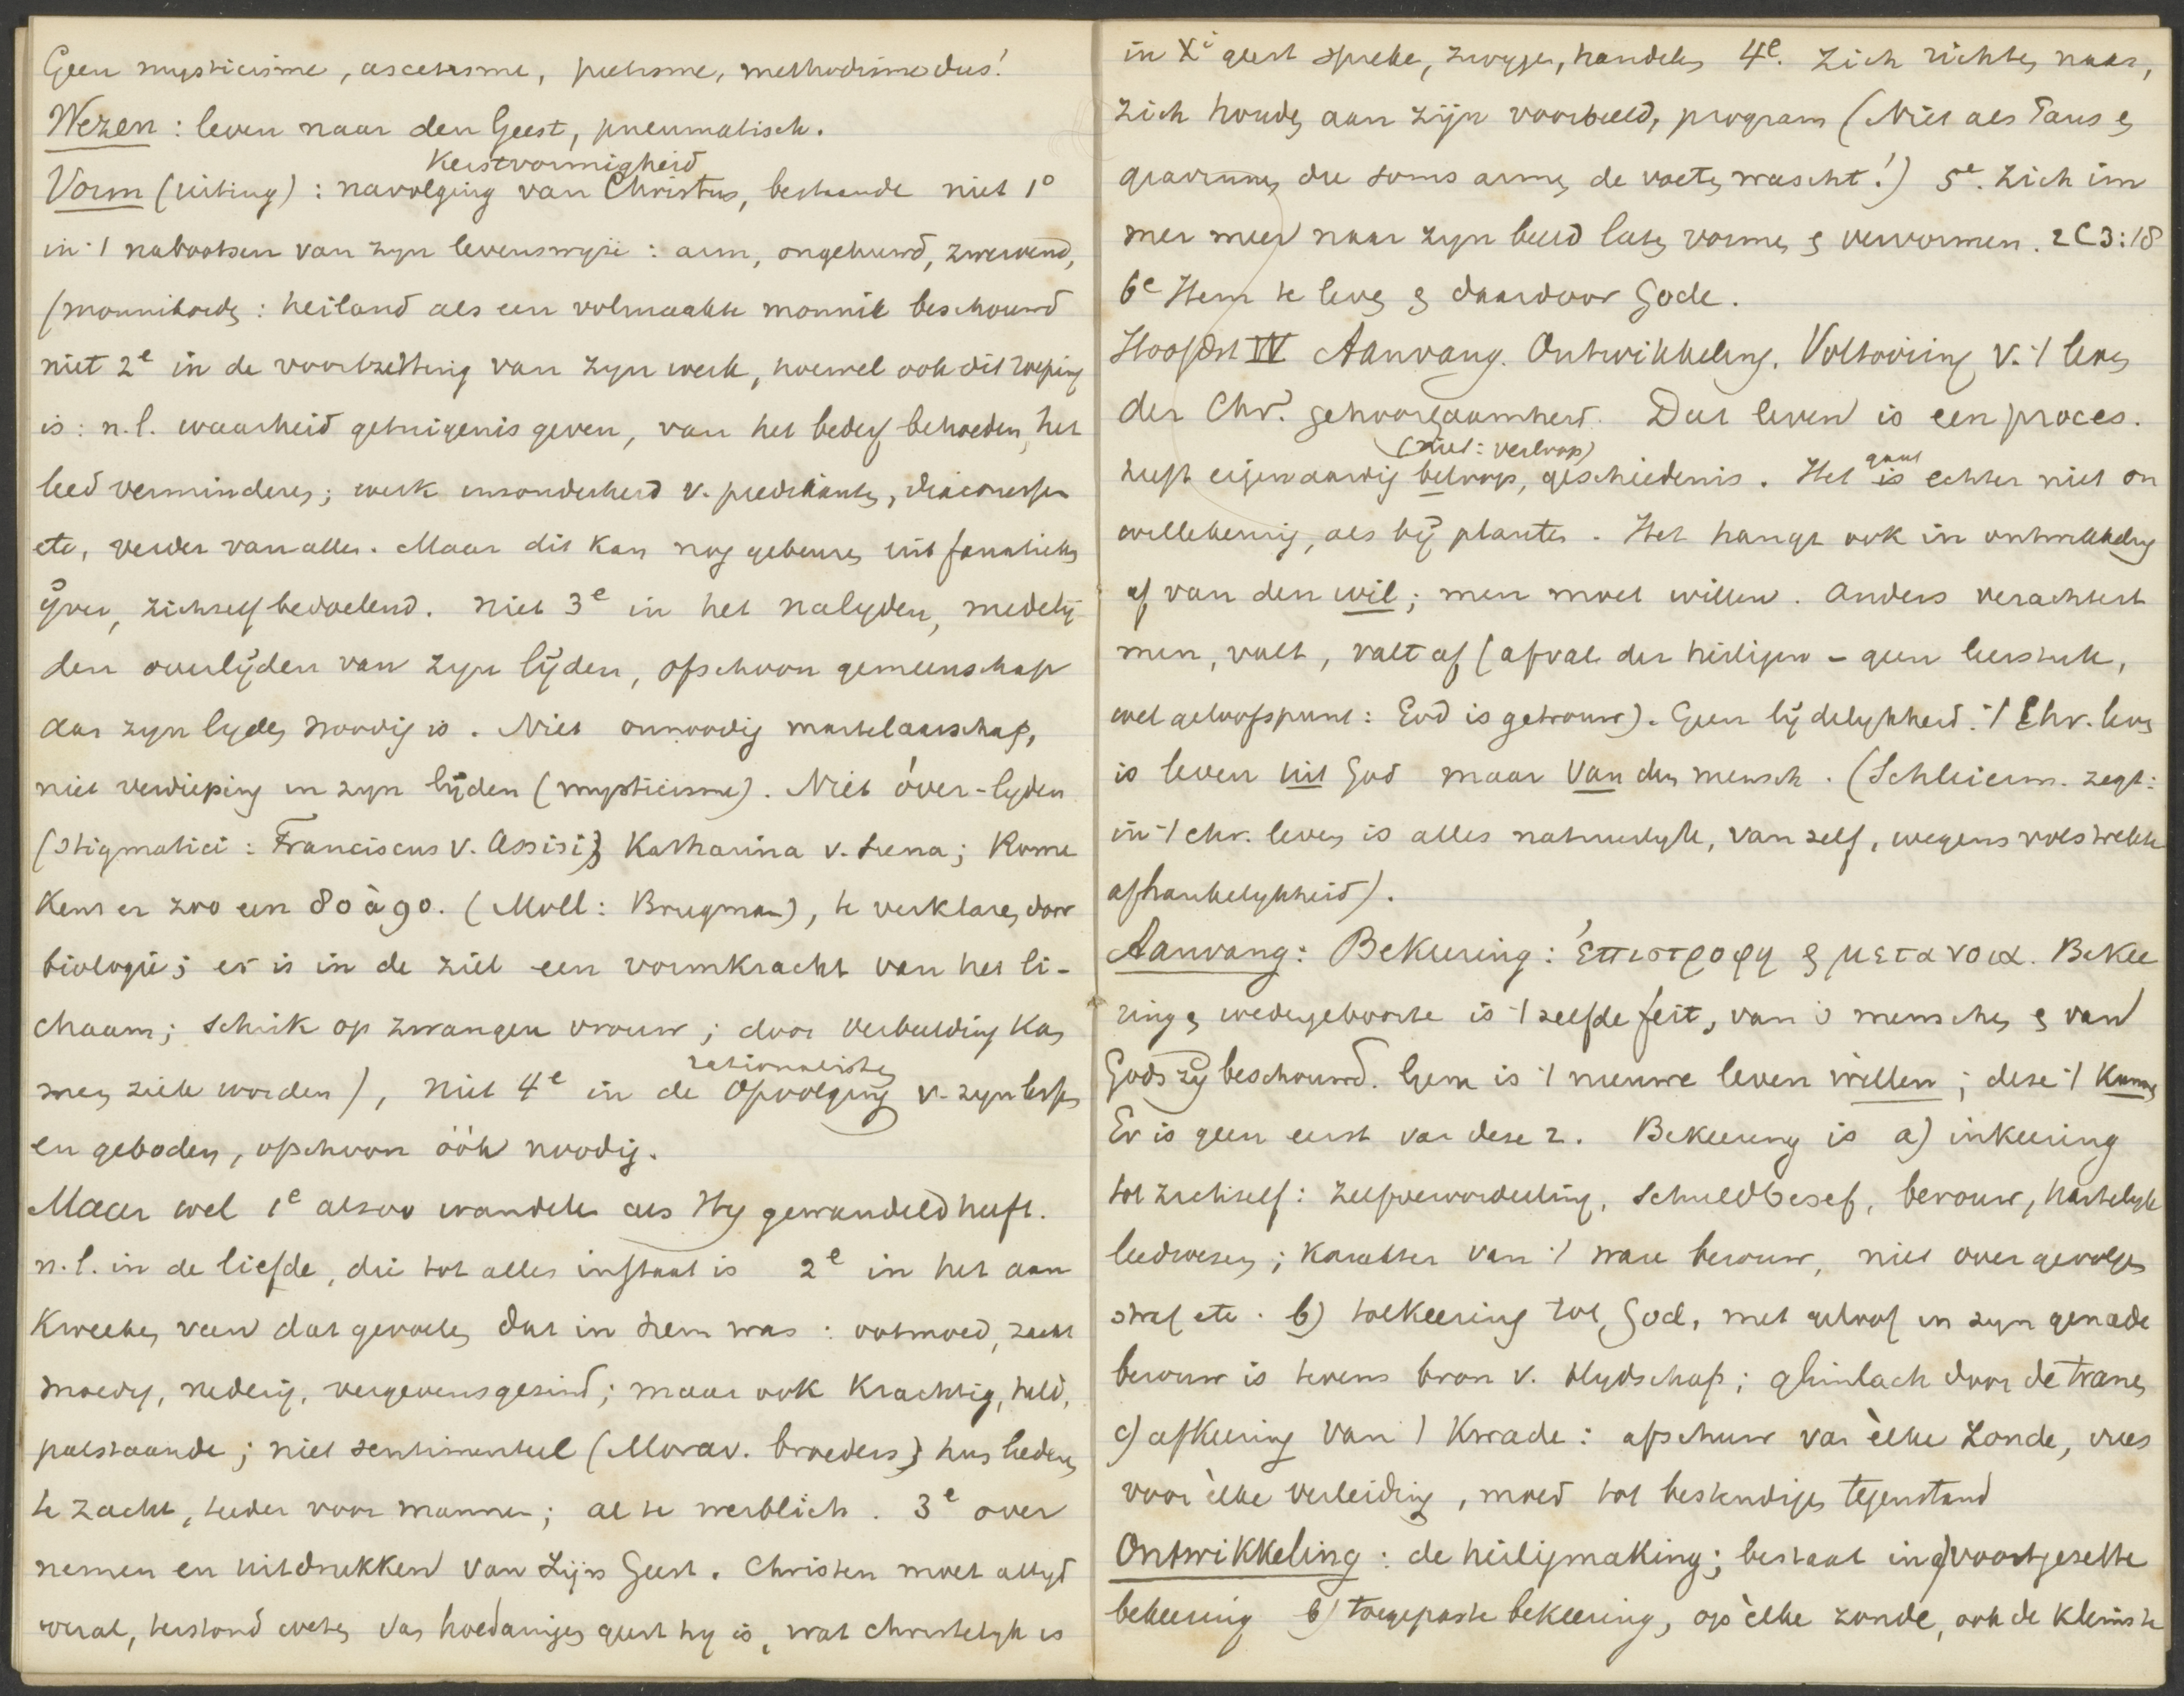 Geen mysticisme, ascetisme, pietisme, methodisme dus!
Wezen: leven naar den Geest, pneumatisch.
Kerstvormigheid
Vorm (uiting): navolging van Christus, bestaande niet 1°
in 't nabootsen van zyn levenswyze: arm, ongehuwd, zwervend,
(monnikorde: heiland als een volmaakte monnik beschouwd
niet 2e in de voortzetting van zyn werk, hoewel ook dit roeping
is: n.l. waarheid getuigenis geven, van het bederf behoeden, het
leed verminderen; werk inzonderheid v. predikante, diaconessen
etc, verder van allen. Maar dit kan nog gebeuren uit fanatieke
ÿver, zichzelf bedoelend. Niet 3e in het nalyden, medelÿ
den overlÿden van zyn lÿden, ofschoon gemeenschap
aan zyn lyden noodig is. Niet onnoodig martelaarschap,
niet verdieping in zyn lÿden (mysticisme). Niet óver-lyden
(stigmatici: Franciscus v. Assisi; Katharina v. Siena; Rome
kent er zoo een 80 à 90. (Moll: Brugman), te verklaren door
biologie; er is in de ziel een vormkracht van het li-
chaam; schrik op zwangere vrouw; door verbeelding kan
men ziek worden), niet 4e in de rationalistische
Opvolging v. zyn lessen
en geboden, ofschoon óók noodig.
Maar wel 1e alzoo wandelen als Hy gewandeld heeft.
n.l. in de liefde, die tot alles instaat is 2e in het aan
kweeken van dat gevoelen dat in Hem was: ootmoed, zacht
moedig, nederig, vergevensgezind; maar ook krachtig, held,
palstaande; niet sentimenteel (Morav. broeders; hun liederen
te zacht, teeder voor mannen; al te weiblich. 3e over
nemen en uitdrukken van Zijn Geest. Christen moet altyd
overal, terstond weten van hoedanigen geest hy is, wat christelyk is
in Xi geest spreken, zwygen, handelen 4e. Zich richten naar,
zich houden aan zÿn voorbeeld, program (Niet als Paus en
gravinnen die soms armen de voeten wascht!) 5e. Zich im
mer meer naar zyn beeld laten vormen en vervormen. 2C3:18
6e Hem te leven en daardoor Gode.
Hoofdst IV Aanvang. Ontwikkeling. Voltooiing v. 't leven
der Chr. gehoorzaamheid. Dat leven is een proces.
(niet: verloop)
heeft eigenaardig beloop, geschiedenis. Het is gaat echter niet on
willekeurig, als bÿ planten. Het hangt ook in ontwikkeling
af van den wil; men moet willen. Anders verachtert
men, valt, valt af (afval der heiligen - geen leerstuk,
wel geloofspunt: God is getrouw). Geen lÿdelykheid. 't Chr. leven
is leven uit God maar van den mensch. (Schleierm. zegt:
in 't chr. leven is alles natuurlyk, van zelf, wegens volstrekte
afhankelykheid).
Aanvang: Bekeering: ἐπιστροφη en μετανοια. Bekee
ring en wedergeboorte is 't zelfde feit, van 's menschen en van
Gods zÿ beschouwd. Gene is 't nieuwe leven willen; deze 't kunnen
Er is geen eerst van deze 2. Bekeering is a) inkeering
tot zichzelf: zelfveroordeeling, schuldbesef, berouw, hartelyk
leedwezen; karakter van 't ware berouw, niet over gevolgen
straf etc. b) toekeering tot God, met geloof in zyn genade
berouw is tevens bron v. blydschap; glimlach door de tranen
c) afkeering van 't kwade: afschuw van èlke zonde, vrees
voor èlke verleiding, moed tot bestendigen tegenstand
Ontwikkeling: de heiligmaking; bestaat in a) voortgezette
bekeering b) toegepaste bekeering, op èlke zonde, ook de kleinste